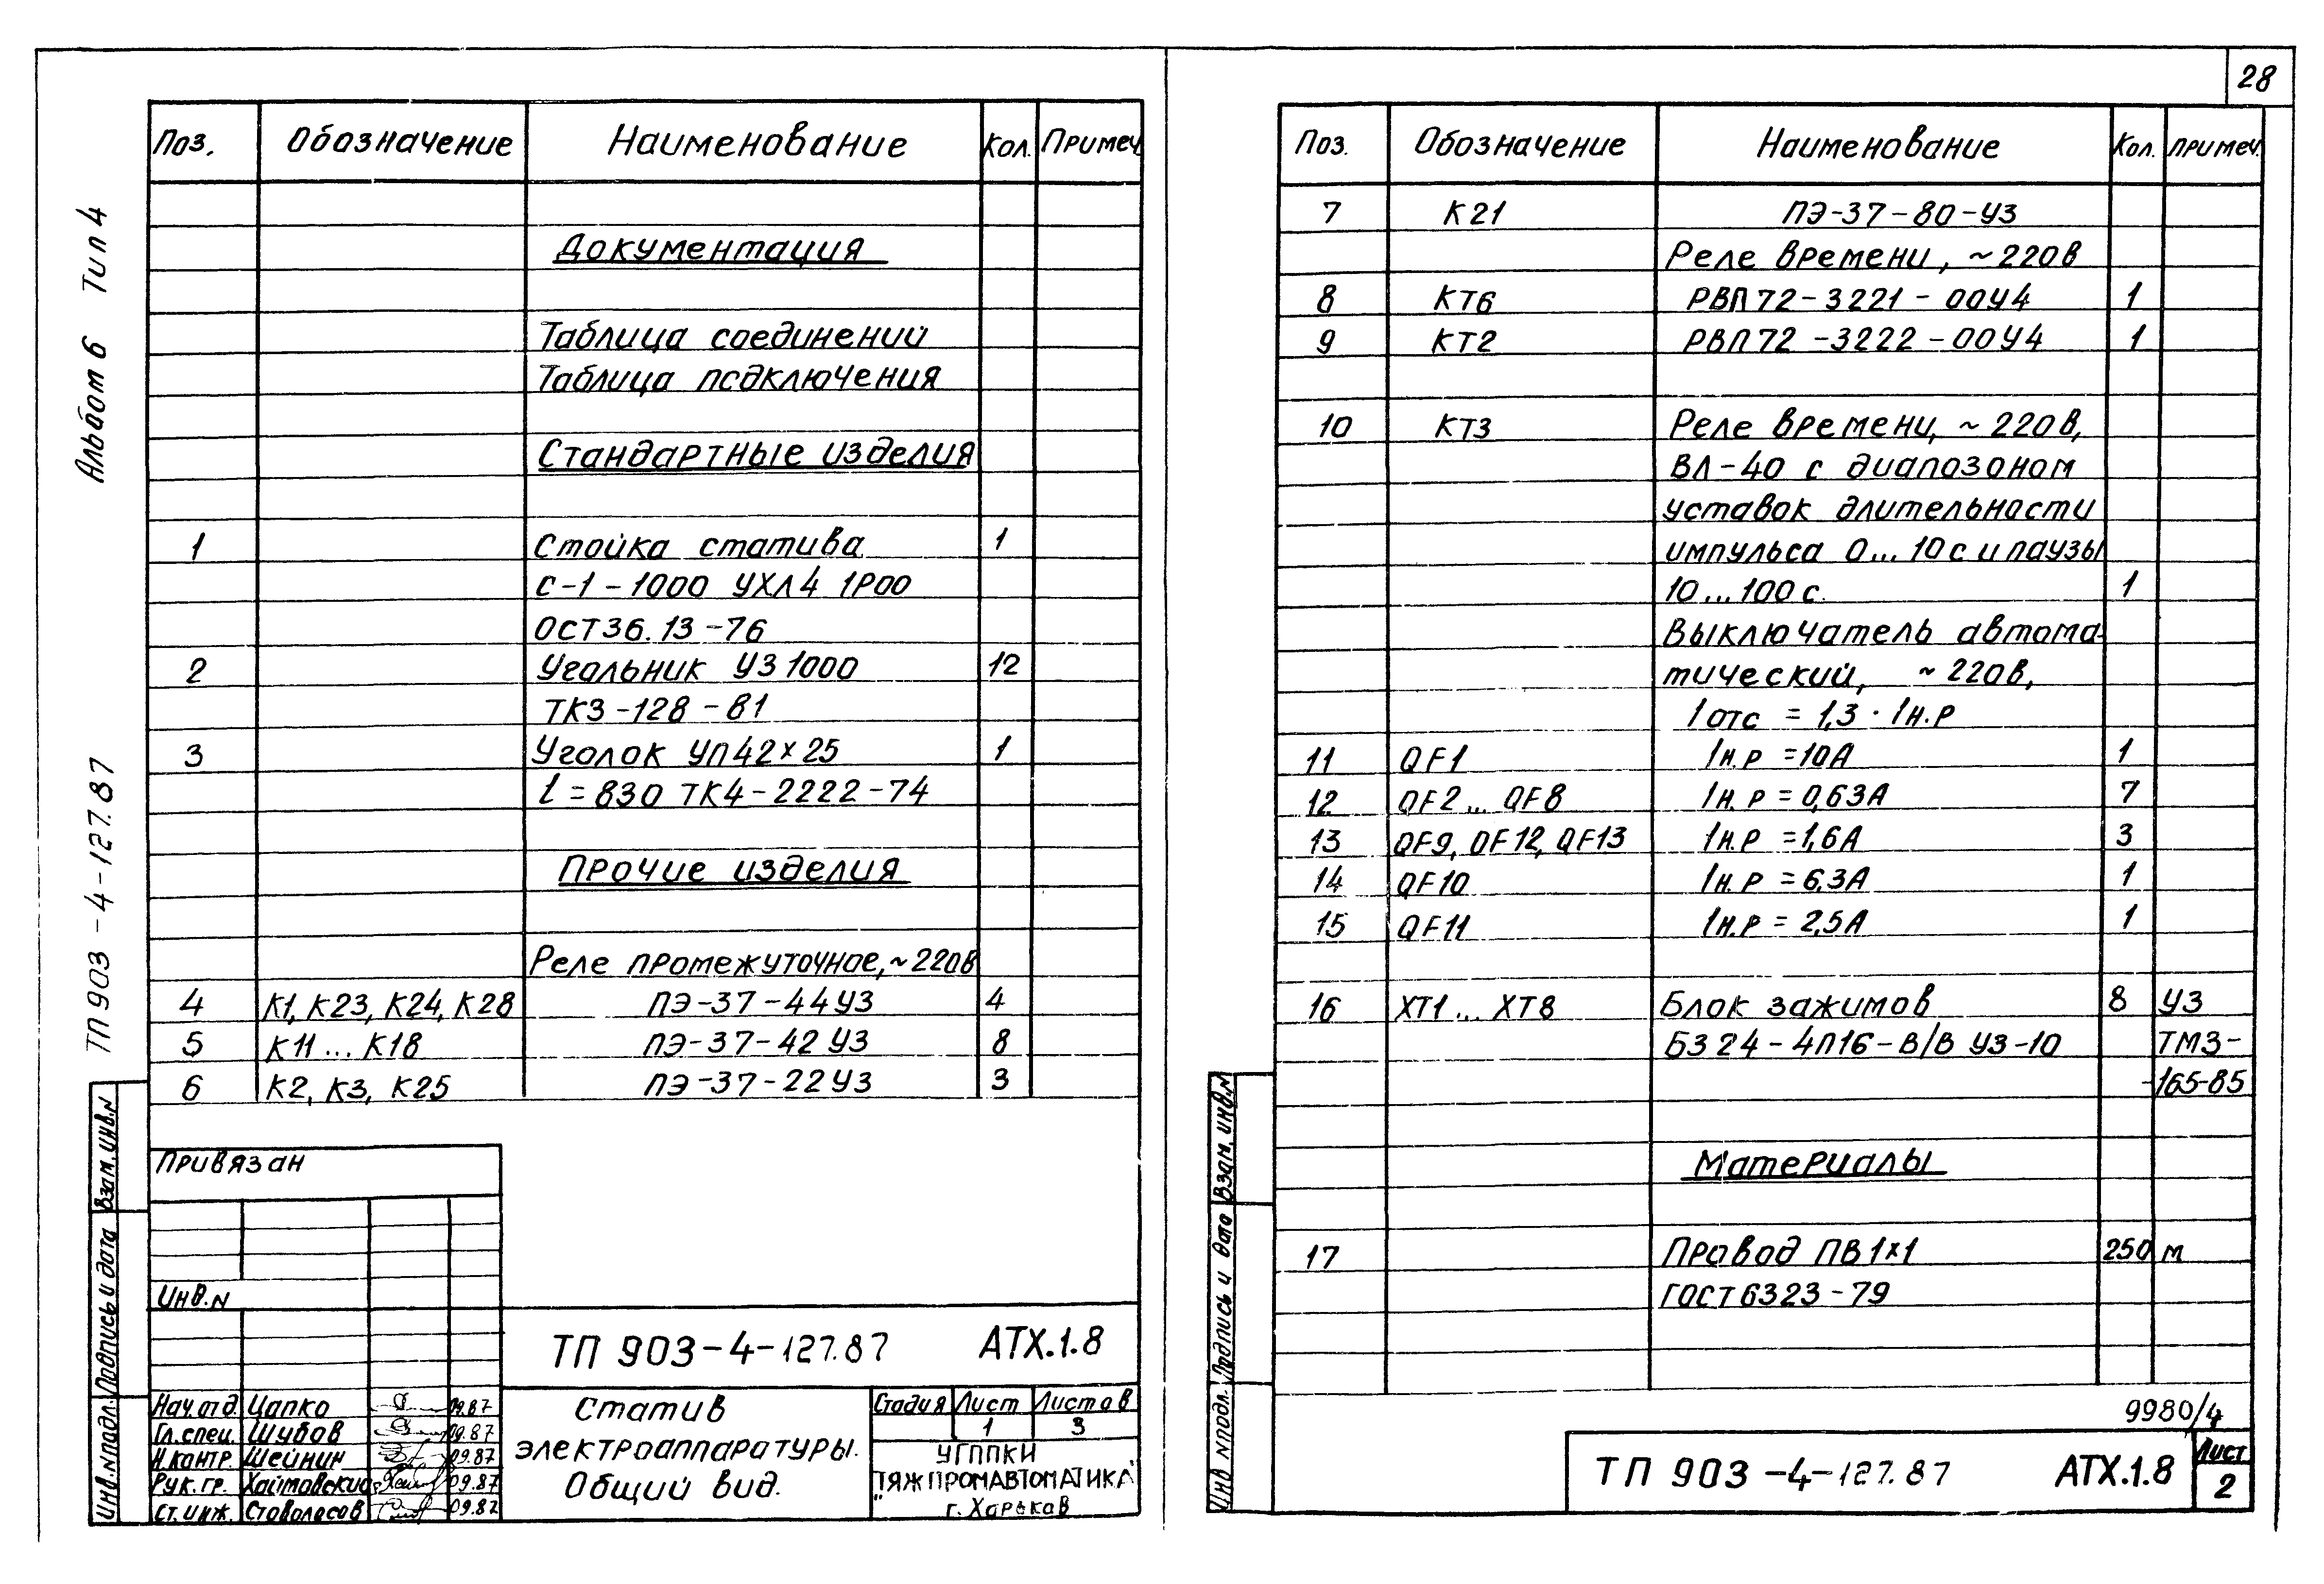 Альбом 6 Тип 4
ТП 903-4-127.87
Поз. Обозначение Наименование Кол. Примеч.
Документация
Таблица соединений
Таблица подключения
Стандартные изделия
1 Стойка статива 1
С-1-1000 УХЛ4 1Р00
ОСТ36.13-76
2 Угольник УЗ 1000 12
ТКЗ-128-81
3 Уголок УП42х25 1
l=830 ТК4-2222-74
Прочие изделия
Реле промежуточное, ~220в
4 К1, К23, К24, К28 ПЭ-37-44У3 4
5 К11...К18 ПЭ-37-42У3 8
6 К2, К3, К25 ПЭ-37-22У3 3
Привязан
Инв.N
ТП 903-4-127.87 АТХ.1.8
Нач.отд. Цапко 09.87
Гл.спец. Шубов 09.87
Н.контр. Шейнин 09.87
Рук.гр. Хаймовский 09.87
Ст.инж. Стоволосов 09.87
Статив
электроаппаратуры.
Общий вид.
Стадия Лист Листов
1 3
УГППКИ
"ТЯЖПРОМАВТОМАТИКА"
г. Харьков
Взам.инв.N
Подпись и дата
Инв.N подл.
28
Поз. Обозначение Наименование Кол. Примеч.
7 К21 ПЭ-37-80-У3
Реле времени, ~220в
8 КТ6 РВП72-3221-00У4 1
9 КТ2 РВП72-3222-00У4 1
10 КТ3 Реле времени, ~220в,
ВЛ-40 с диапозоном
уставок длительности
импульса 0...10с и паузы
10...100с. 1
Выключатель автома-
тический, ~220в,
Iотс = 1,3·Iн.р
11 QF1 Iн.р =10А 1
12 QF2...QF8 Iн.р=0,63А 7
13 QF9, QF12, QF13 Iн.р =1,6А 3
14 QF10 Iн.р =6,3А 1
15 QF11 Iн.р = 2,5А 1
16 ХТ1...ХТ8 Блок зажимов 8 УЗ
БЗ24-4П16-В/В У3-10 ТМЗ-
-165-85
Материалы
17 Провод ПВ1х1 250 м
ГОСТ 6323-79
9980/4
ТП 903-4-127.87 АТХ.1.8
Лист
2
Взам.инв.N
Подпись и дата
Инв N подл.